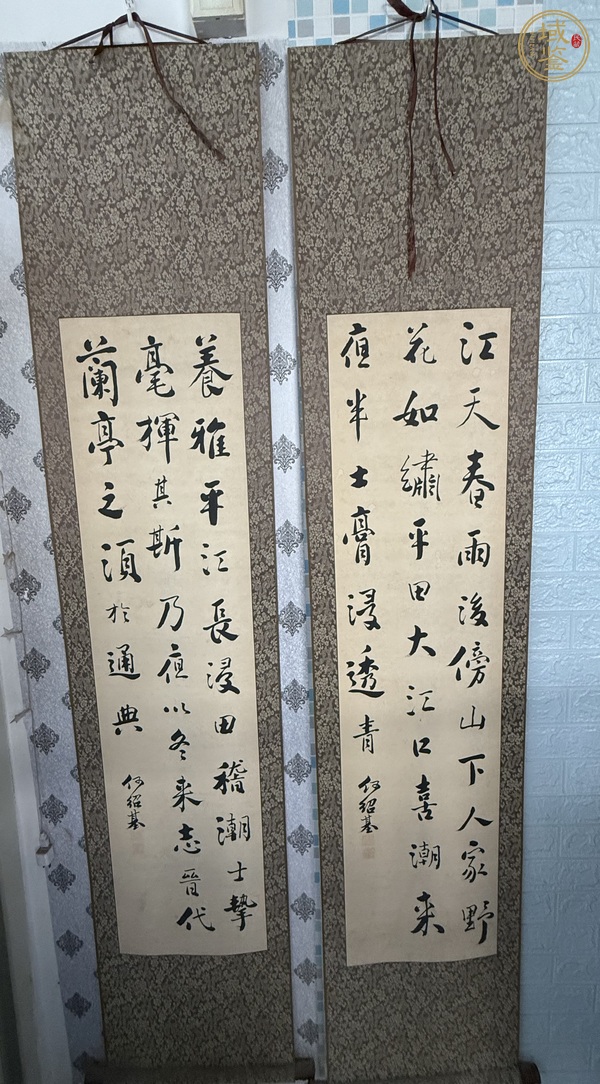 江天春雨後傍山下人家野
花如繡平田大江口喜潮来
夜半士膏浸透青
何紹基
養雅平江長浸田稽潮士摯
毫揮其斯乃夜以冬来志晉代
蘭亭之須於通典
何紹基